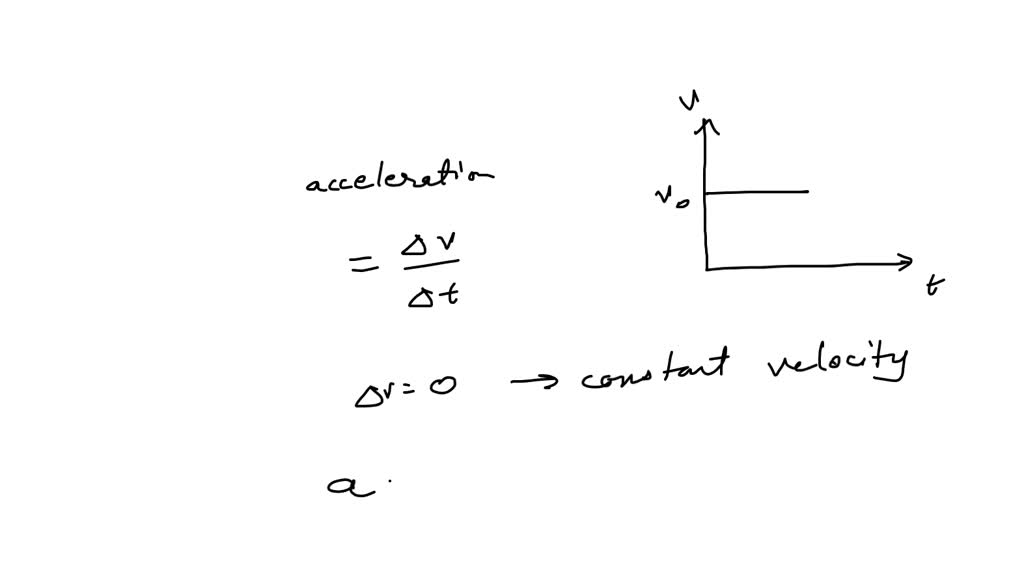 v
acceleration
v₀
= Δv/Δt
t
Δv = 0 → constant velocity
a